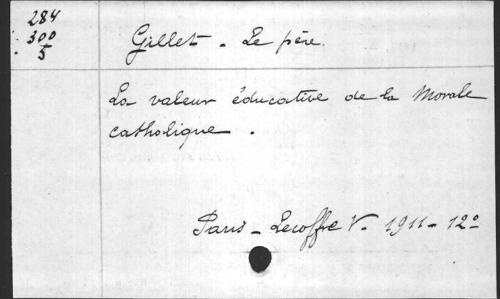 284
300
5
Gillet - Le père.
La valeur éducative de la Morale
catholique.
Paris - Lecoffre V. 1911 - 12º